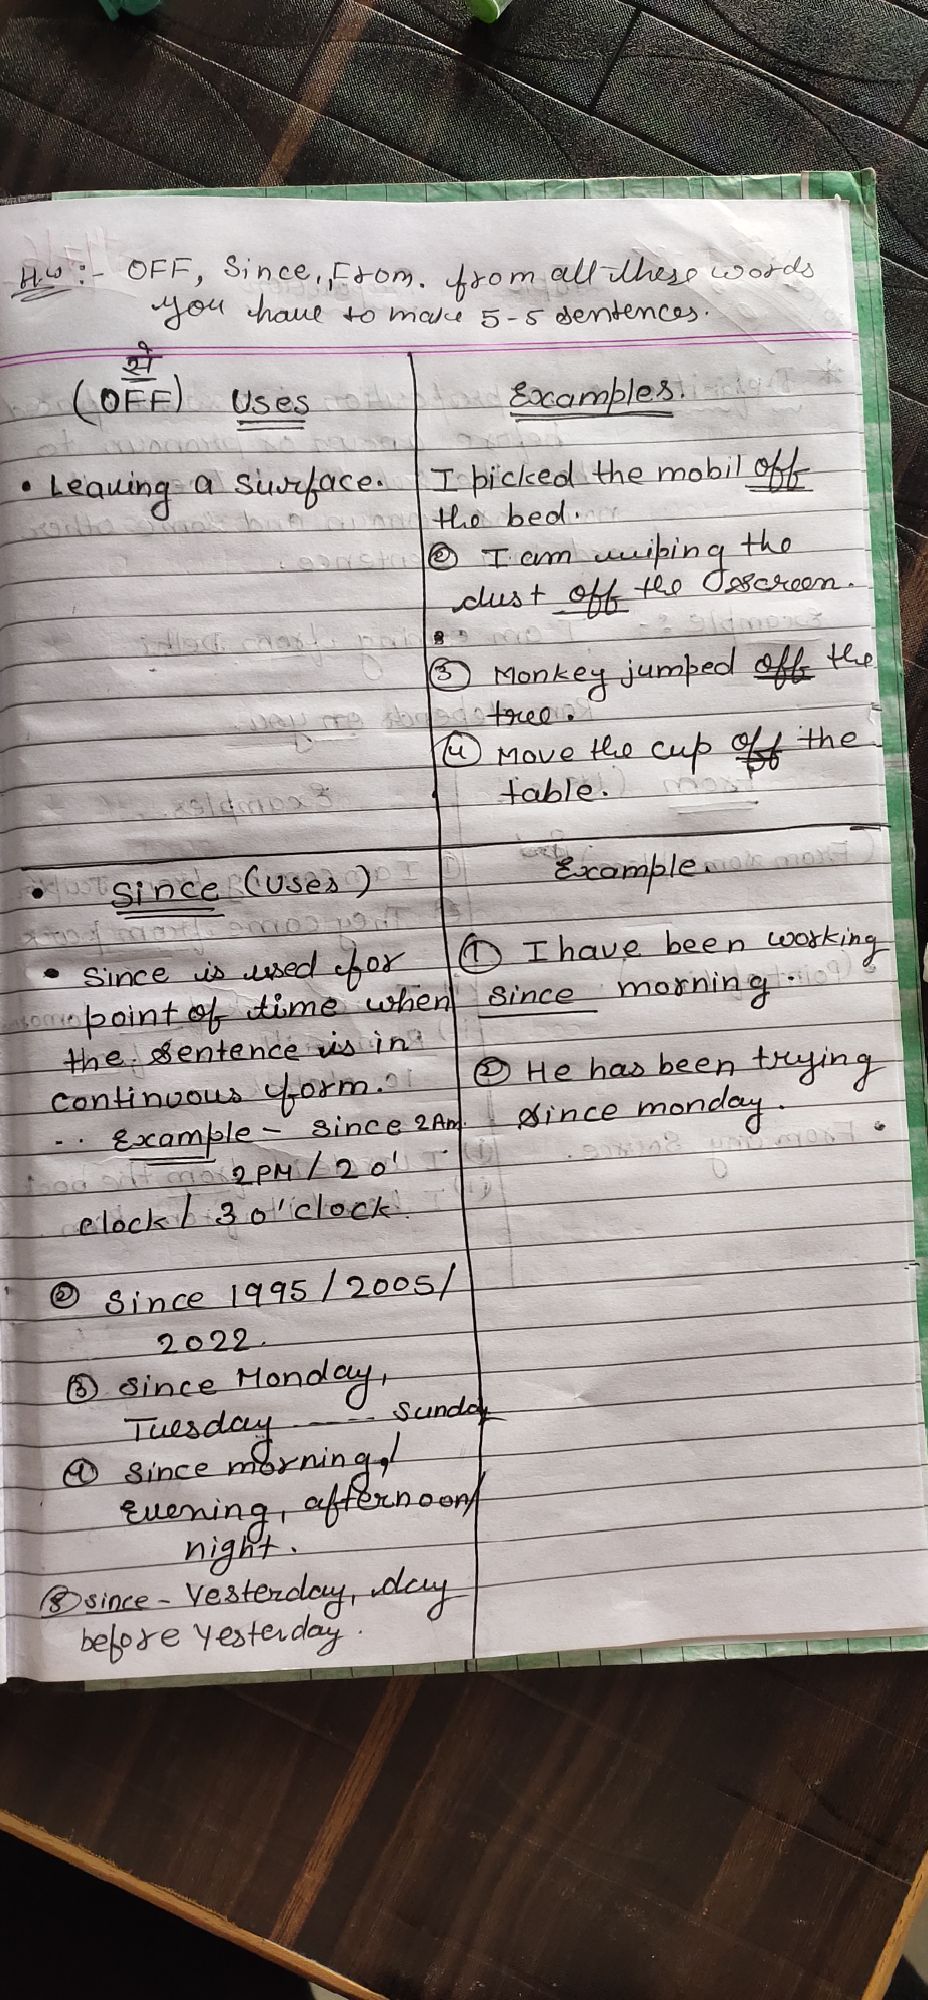 H.W :- OFF, Since, From. from all these words
you have to make 5-5 sentences.
से
(OFF) Uses
• Leaving a surface.
Examples.
I picked the mobil off
the bed.
② I am wiping the
dust off the screen.
③ Monkey jumped off the
tree.
④ Move the cup off the
table.
• Since (Uses)
• Since is used for
point of time when
the sentence is in
continuous form.
Example - since 2 Am
2 PM / 2 o'
clock / 3 o'clock
② Since 1995 / 2005 /
2022.
③ Since Monday,
Tuesday ---- Sunday
④ Since morning,/
Evening, afternoon/
night.
⑤ since - Yesterday, day
before Yesterday.
Example.
① I have been working
since morning.
② He has been trying
since monday.